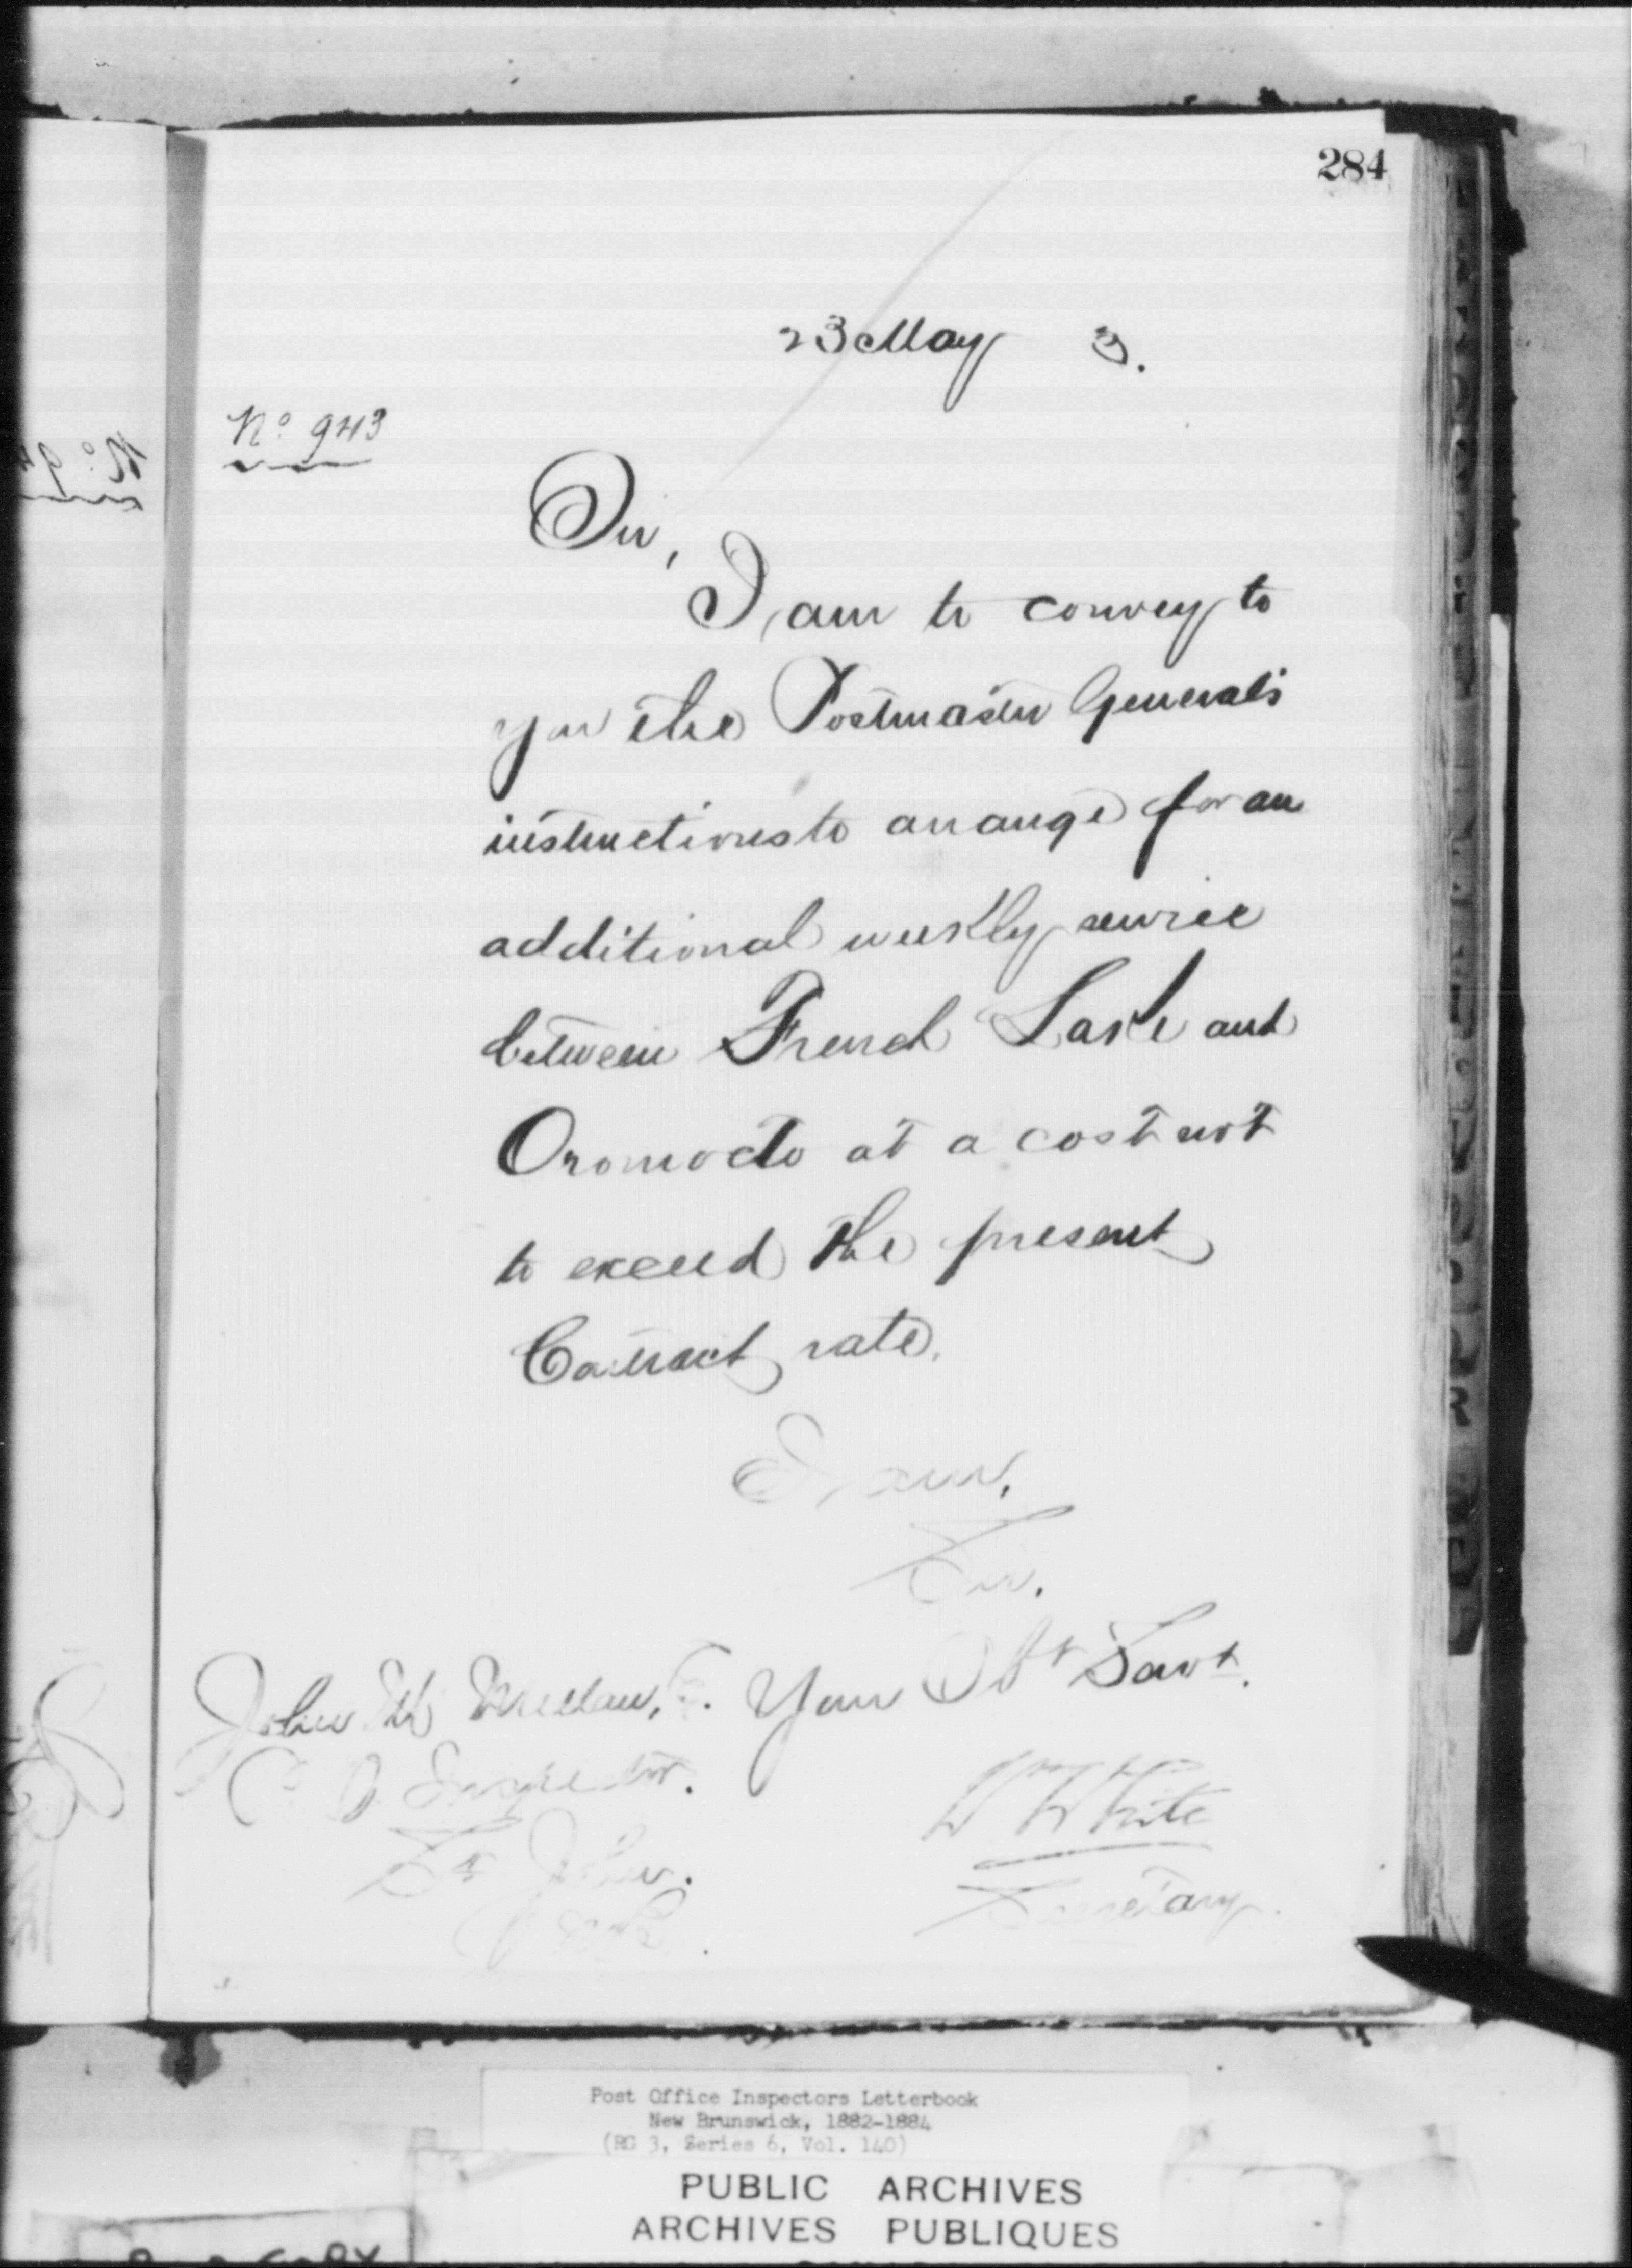 284
23 May 3.
No. 943
Sir,
I am to convey to
you the Postmaster General's
instructions to arrange for an
additional weekly service
between French Lake and
Oromocto at a cost not
to exceed the present
Contract rate.
I am,
Sir.
Your Obt Servt.
John
P. O. Inspector.
St John.
N.B.
W White
Secretary.
Post Office Inspectors Letterbook
New Brunswick, 1882-1884
(RG 3, Series 6, Vol. 140)
PUBLIC ARCHIVES
ARCHIVES PUBLIQUES
COPY